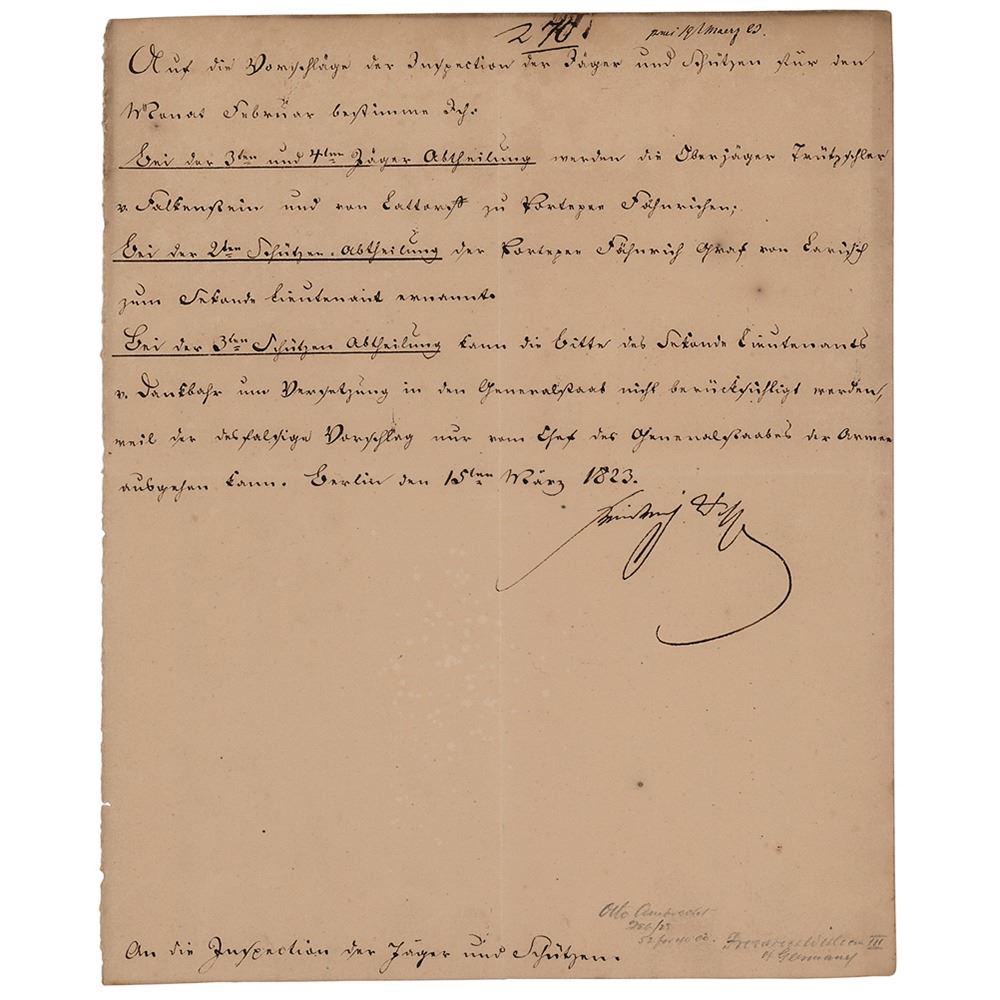 270.
prs 19t Maerz 23.
Auf die Vorschläge der Inspection der Jäger und Schützen für den
Monat Februar bestimme Ich:
Bei der 3ten und 4ten Jäger Abtheilung werden die Oberjäger Trützschler
v. Falkenstein und von Lattorff zu Portepee Fähnrichen;
Bei der 2ten Schützen-Abtheilung der Portepee Fähnrich Graf von Larisch
zum Sekonde Lieutenant ernannt.
Bei der 3ten Schützen Abtheilung kann die Bitte des Sekonde Lieutenants
v. Dankbahr um Versetzung in den Generalstaab nicht berücksichtigt werden,
weil der desfalsige Vorschlag nur vom Chef des Generalstaabes der Armee
ausgehen kann. Berlin den 15ten März 1823.
Friedrich Wilh
An die Inspection der Jäger und Schützen.
Otto Ambrecht
Frederick William III
of Germany